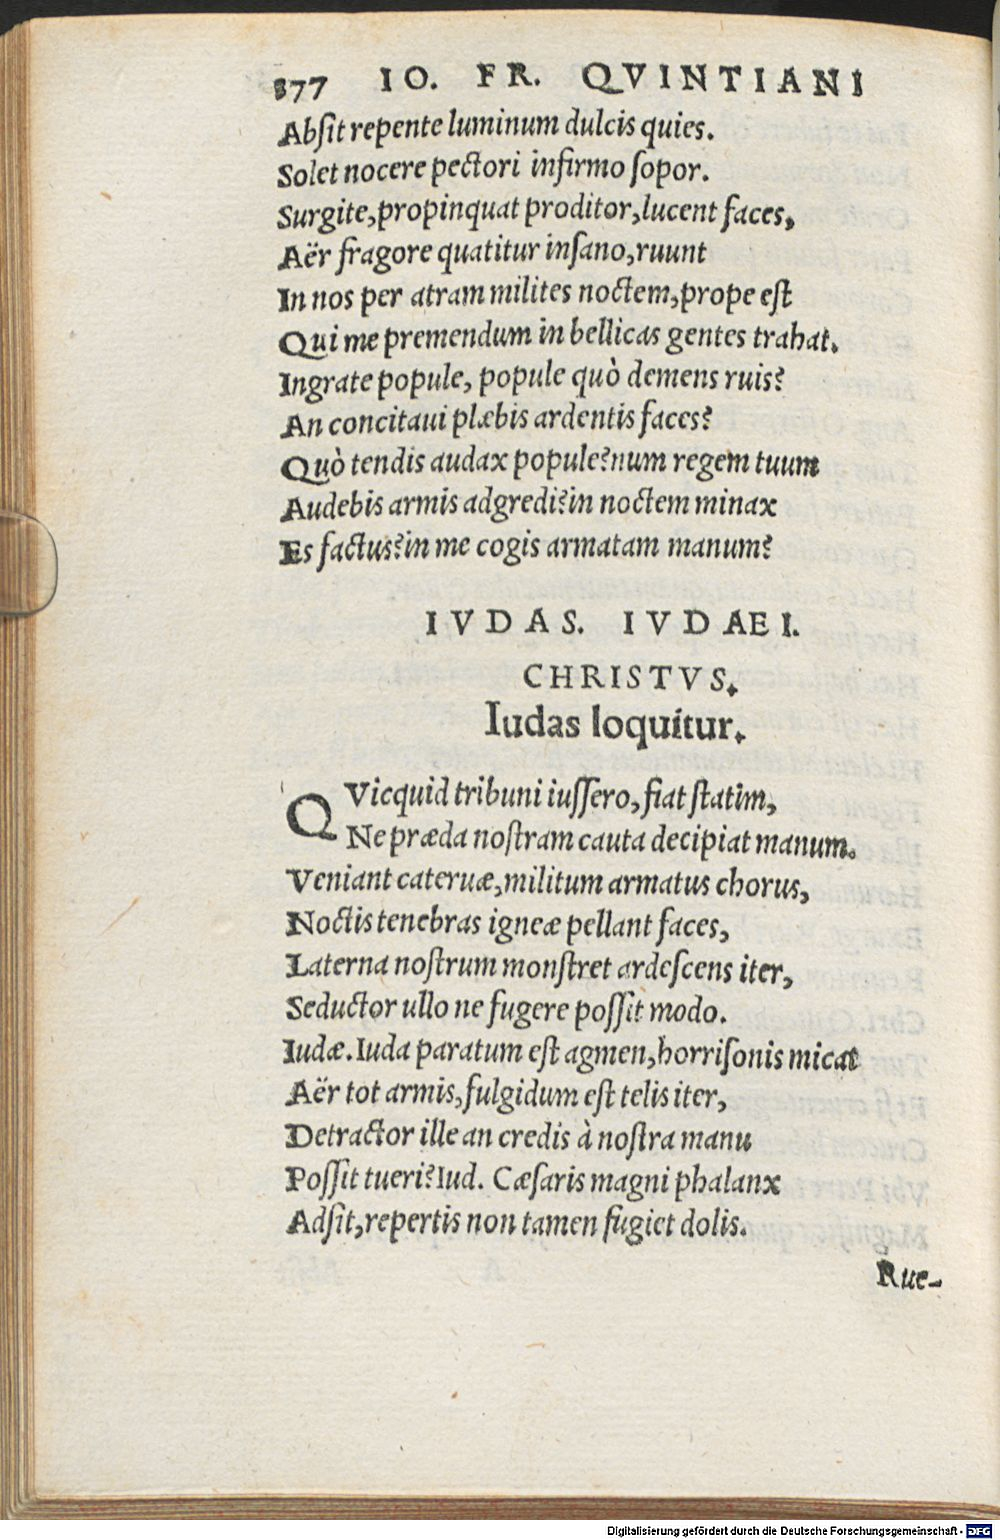 377 IO. FR. QVINTIANI
Absit repente luminum dulcis quies.
Solet nocere pectori infirmo sopor.
Surgite, propinquat proditor, lucent faces,
Aër fragore quatitur insano, ruunt
In nos per atram milites noctem, prope est
Qui me premendum in bellicas gentes trahat.
Ingrate popule, popule quò demens ruis?
An concitaui plæbis ardentis faces?
Quò tendis audax popule? num regem tuum
Audebis armis adgredi? in noctem minax
Es factus? in me cogis armatam manum?
IVDAS. IVDAEI.
CHRISTVS.
Iudas loquitur.
QVicquid tribuni iussero, fiat statim,
Ne præda nostram cauta decipiat manum.
Veniant cateruæ, militum armatus chorus,
Noctis tenebras igneæ pellant faces,
Laterna nostrum monstret ardescens iter,
Seductor ullo ne fugere possit modo.
Iudæ. Iuda paratum est agmen, horrisonis micat
Aër tot armis, fulgidum est telis iter,
Detractor ille an credis à nostra manu
Possit tueri? Iud. Cæsaris magni phalanx
Adsit, repertis non tamen fugiet dolis.
Rue-
Digitalisierung gefördert durch die Deutsche Forschungsgemeinschaft - DFG